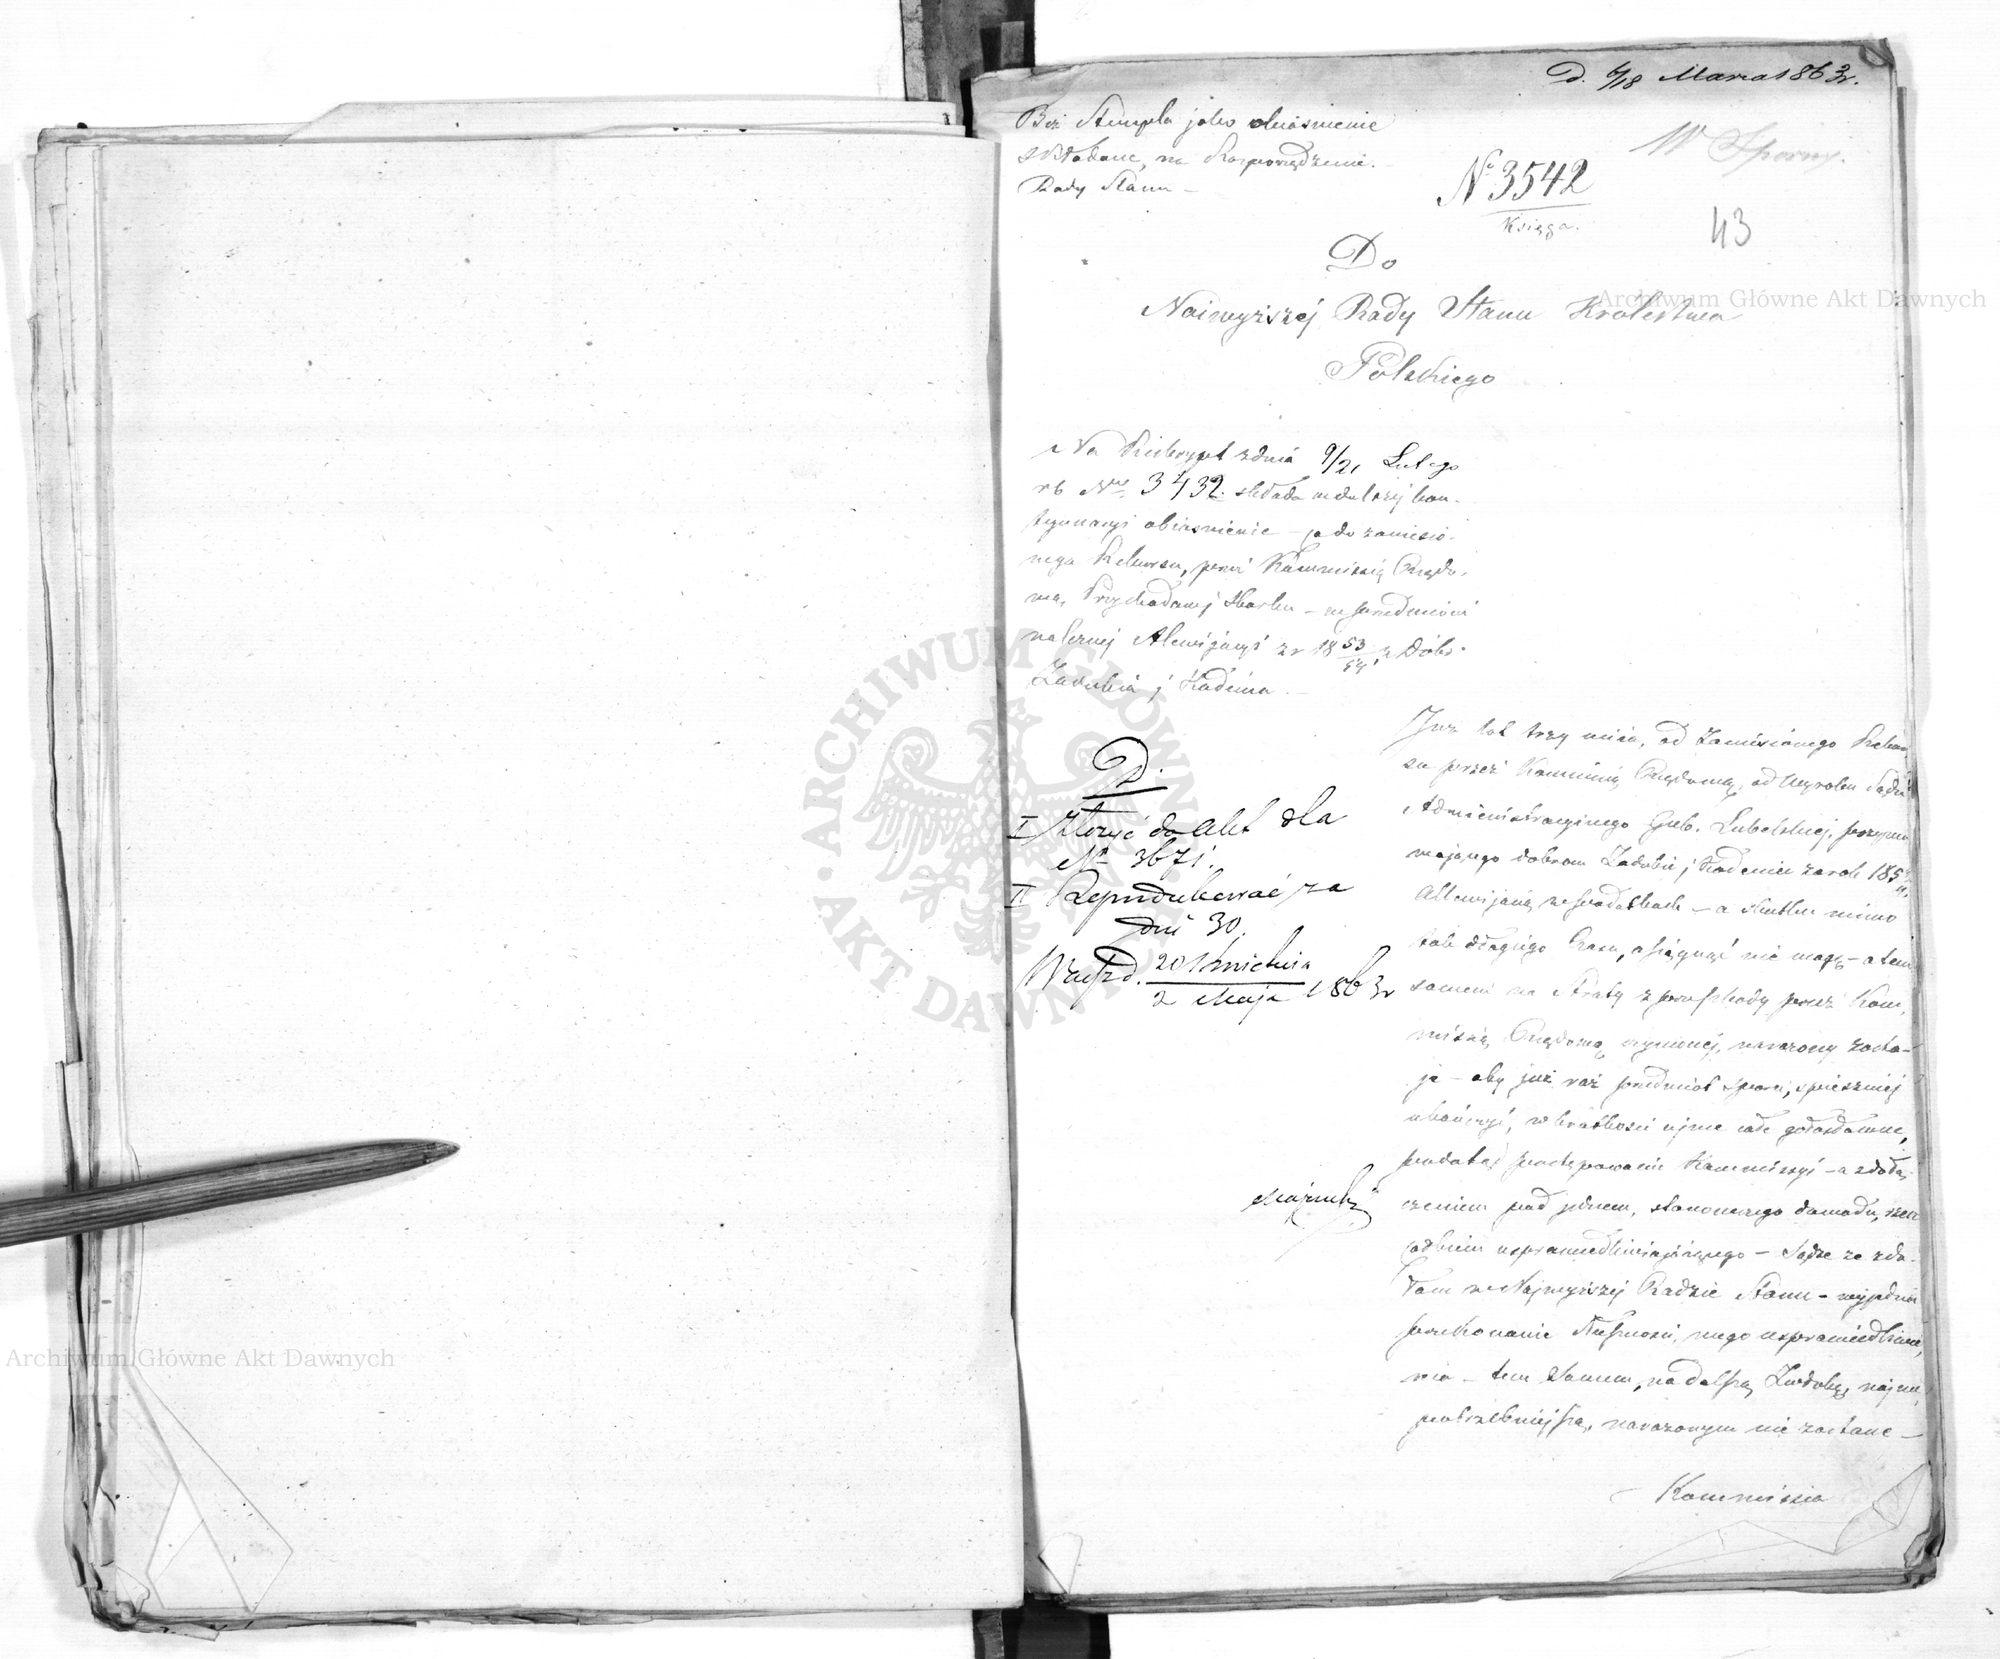 D. 6/18 Marca 1863 r.
Bez Stempla jako obiaśnienie
składane, na Rozporządzenie
Rady Stanu —
W Sporny.
No 3542
Księga.
43
Do
Naiwyższej Rady Stanu Królestwa
Polskiego
Na Reskrypt z dnia 9/21 Lutego
rb Nro 3432. składa w dalszej kon-
tynuacyi obiaśnienie — do zaniesio-
nego Rekursu, przez Kommissią Rządo-
wą, Przychodów Skarbu — w przedmiocie
należnej Alewijacyi z r 1853/54 z Dóbr
Zadubia j Kadzina —
Już lat trzy mija, od Zaniesionego Rekur-
su przez Kommissią Rządową, od Wyroku Sądu
Administracyjnego Gub. Lubelskiej, przyzna-
wającego dobrom Zadubie j Kadzinie za rok 1853/4
Allewijacią w podatkach — a skutku mimo
tak długiego Czasu, osiągnąć nie mogę — a tem
samem na Straty z przeszkody przez Kom-
missią Rządową czynionej, narażony zosta-
ję — aby już raz przedmiot sporu, spieszniej
ukończyć, w krótkości ujmę całe gołosłowne,
podataj postępowanie Kommissyi — a z dołą-
czeniem pod jednem, stanowczego dowodu, rzecz
usprawiedliwiającego — Sądzę że zda-
łam w Najwyższej Radzie Stanu — wyjedna
przekonanie Słuszności, mego usprawiedliwie-
nia — tem samem, na dalszą Zwłokę, naj nie
potrzebniejszą, narażonym nie zostanę —
Kommissia
D.
I Złożyć do akt dla
No 3671.
II Reprodukować za
dni 30.
Warsz d. 20 Kwietnia
2 Maja 1863 r
Archiwum Główne Akt Dawnych
Archiwum Główne Akt Dawnych
ARCHIWUM GŁÓWNE AKT DAWNYCH